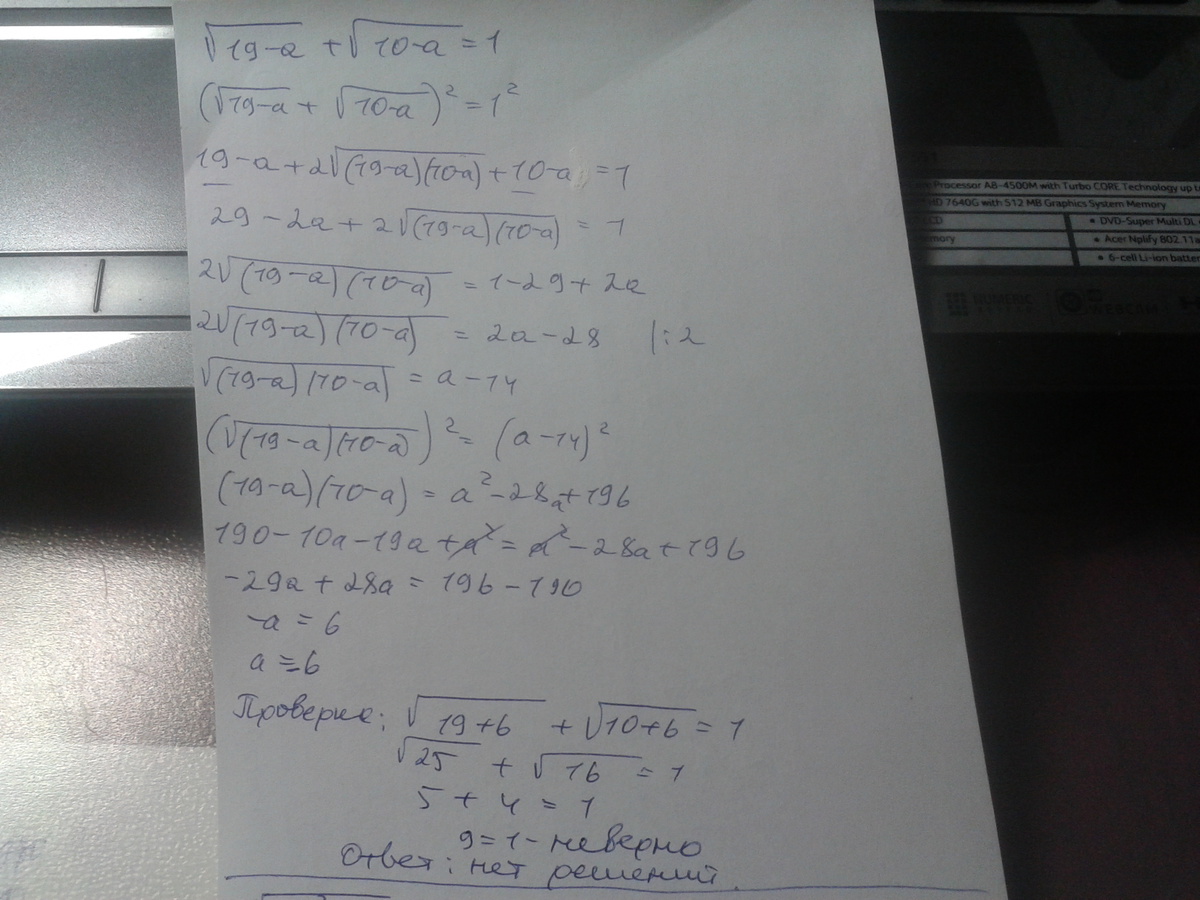 √19-a + √10-a = 1
(√19-a + √10-a)² = 1²
19-a+2√(19-a)(10-a)+10-a = 1
29-2a+2√(19-a)(10-a) = 1
2√(19-a)(10-a) = 1-29+2a
2√(19-a)(10-a) = 2a-28 |:2
√(19-a)(10-a) = a-14
(√(19-a)(10-a))² = (a-14)²
(19-a)(10-a) = a²-28a+196
190-10a-19a+a² = a²-28a+196
-29a+28a = 196-190
-a = 6
a = -6
Проверка: √19+6 + √10+6 = 1
√25 + √16 = 1
5 + 4 = 1
9=1 - неверно
Ответ: нет решений.
Processor A8-4500M with Turbo CORE Technology up t
HD 7640G with 512 MB Graphics System Memory
CD
• DVD-Super Multi DL
• Acer Nplify 802.11a
• 6-cell Li-ion batter
NUMERIC
WEBCAM